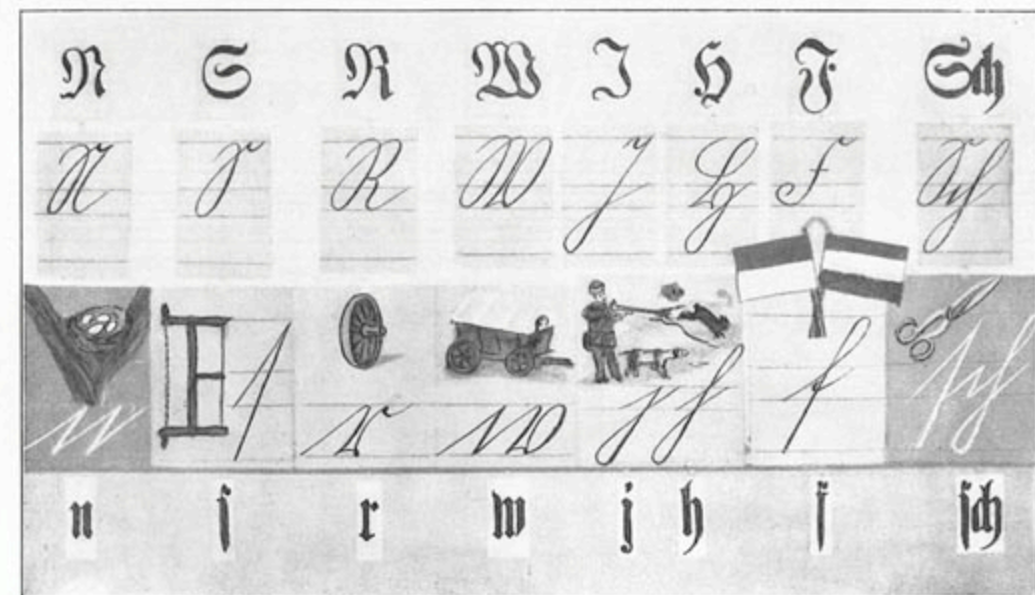 N S R W J H F. Sch
N S R W J H F Sch
n ſ r w j h f ſch
n ſ r w j h f ſch